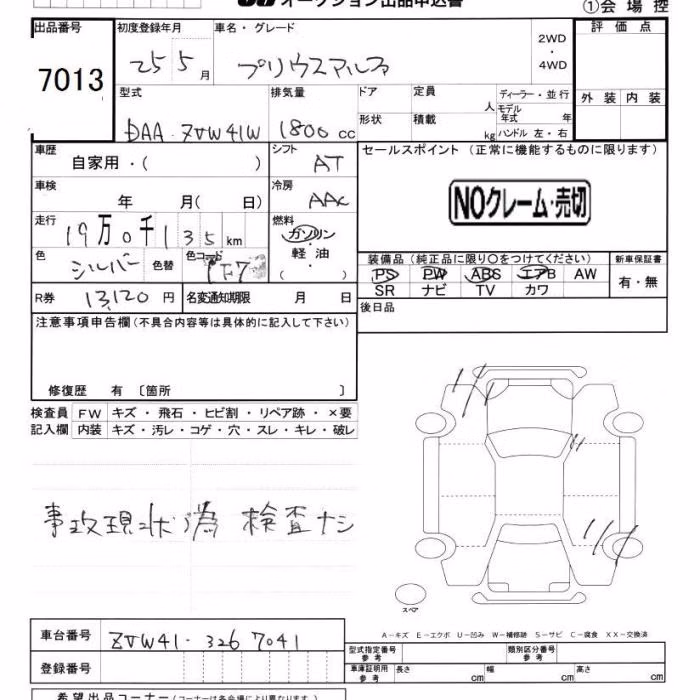 オークション出品申込書
①会場控
出品番号
7013
初度登録年月
25 5 月
車名・グレード
プリウスアルファ
2WD
・
4WD
評価点
外装 内装
型式
DAA-ZVW41W
排気量
1800 cc
ドア
形状
定員 人
積載 kg
ディーラー・並行
モデル年式 年
ハンドル 左・右
車歴
自家用・( )
シフト
AT
セールスポイント (正常に機能するものに限ります)
車検
年 月( 日)
冷房
AAC
NOクレーム・売切
走行
19万0千135km
燃料
ガソリン
軽油
( )
色
シルバー
色替
色コード
1F7
装備品(純正品に限り〇をつけてください)
PS PW ABS エアB AW
SR ナビ TV カワ
新車保証書
有・無
R券
13,120 円
名変通知期限 月 日
後日品
注意事項申告欄(不具合内容等は具体的に記入して下さい)
修復歴 有 〔箇所 〕
検査員
記入欄
FW キズ・飛石・ヒビ割・リペア跡・×要
内装 キズ・汚レ・コゲ・穴・スレ・キレ・破レ
事故現状渦 検査ナシ
スペア
A-キズ E-エクボ U-凹み W-補修跡 S-サビ C-腐食 XX-交換済
車台番号
ZVW41-3267041
登録番号
型式指定番号
参考
類別区分番号
参考
車庫証明用
参考
長さ cm
幅 cm
高さ cm
希望出品コーナー(コーナーは各会場により異なります。)